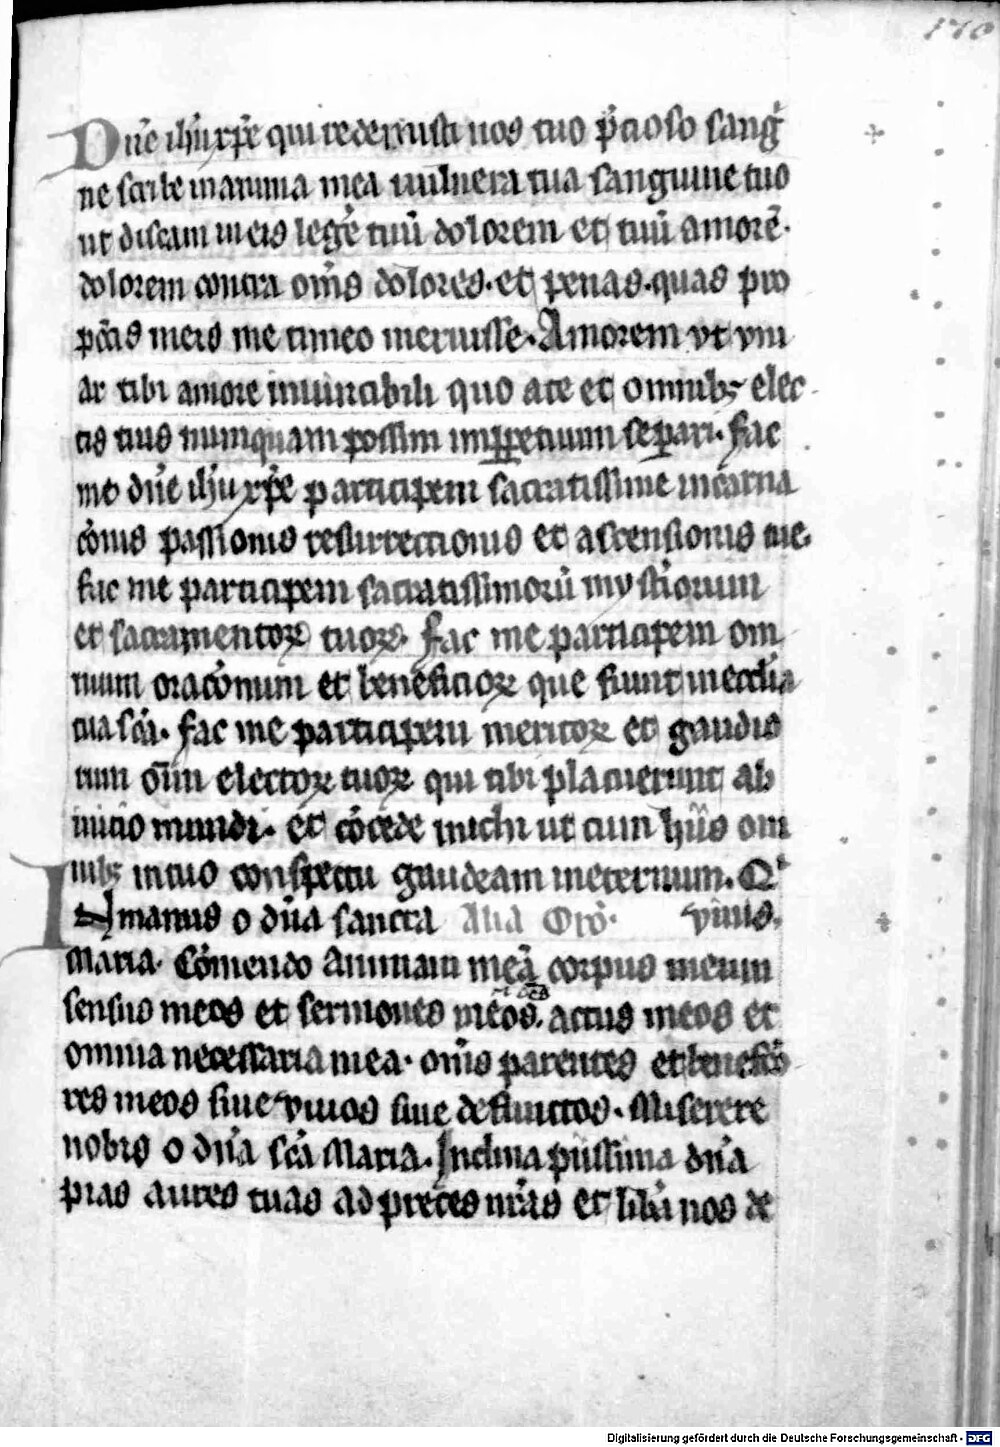 170
Dn̄e ih̄u xp̄e qui redemisti nos tuo p̄cioso sangⁱ
ne scribe in anima mea uulnera tua sanguine tuo
ut discam in eis legēre tuū dolorem et tuū amorē.
dolorem contra om̄s dolores. et penas. quas pro
pc̄cis meis me timeo meruisse. Amorem vt vni
ar tibi amore inuincibili quo a te et omnibꝫ elec
tis tuis numquam possim imꝑpetuum seꝑari. fac
me dn̄e ih̄u xp̄e participem sacratissime incarna
cōnis passionis resurrectionis et ascensionis tue.
fac me participem sacratissimorū mysteriorum
et sacramentoꝝ tuoꝝ. fac me participem om
nium orac̄onum et beneficioꝝ que fiunt in eccl̄ia
tua sc̄a. fac me participem meritoꝝ et gaudio
rum om̄m electoꝝ tuoꝝ qui tibi placuerunt ab
inicio mundi. et cōcede michi ut cum hijs om
nibꝫ in tuo conspectu gaudeam in eternum. Qⁱ
In manus o dn̄a sancta Alia Orō. viuis.
maria. Cōmendo animam meā corpus meum
sensus meos et sermones meos. actus meos et
omnia necessaria mea. om̄s parentes et benefcō
res meos siue viuos siue defunctos. Miserere
nobis o dn̄a sc̄a Maria. Inclina piissima dn̄a
pias aures tuas ad preces nr̄as et lib̄a nos de
Digitalisierung gefördert durch die Deutsche Forschungsgemeinschaft - DFG